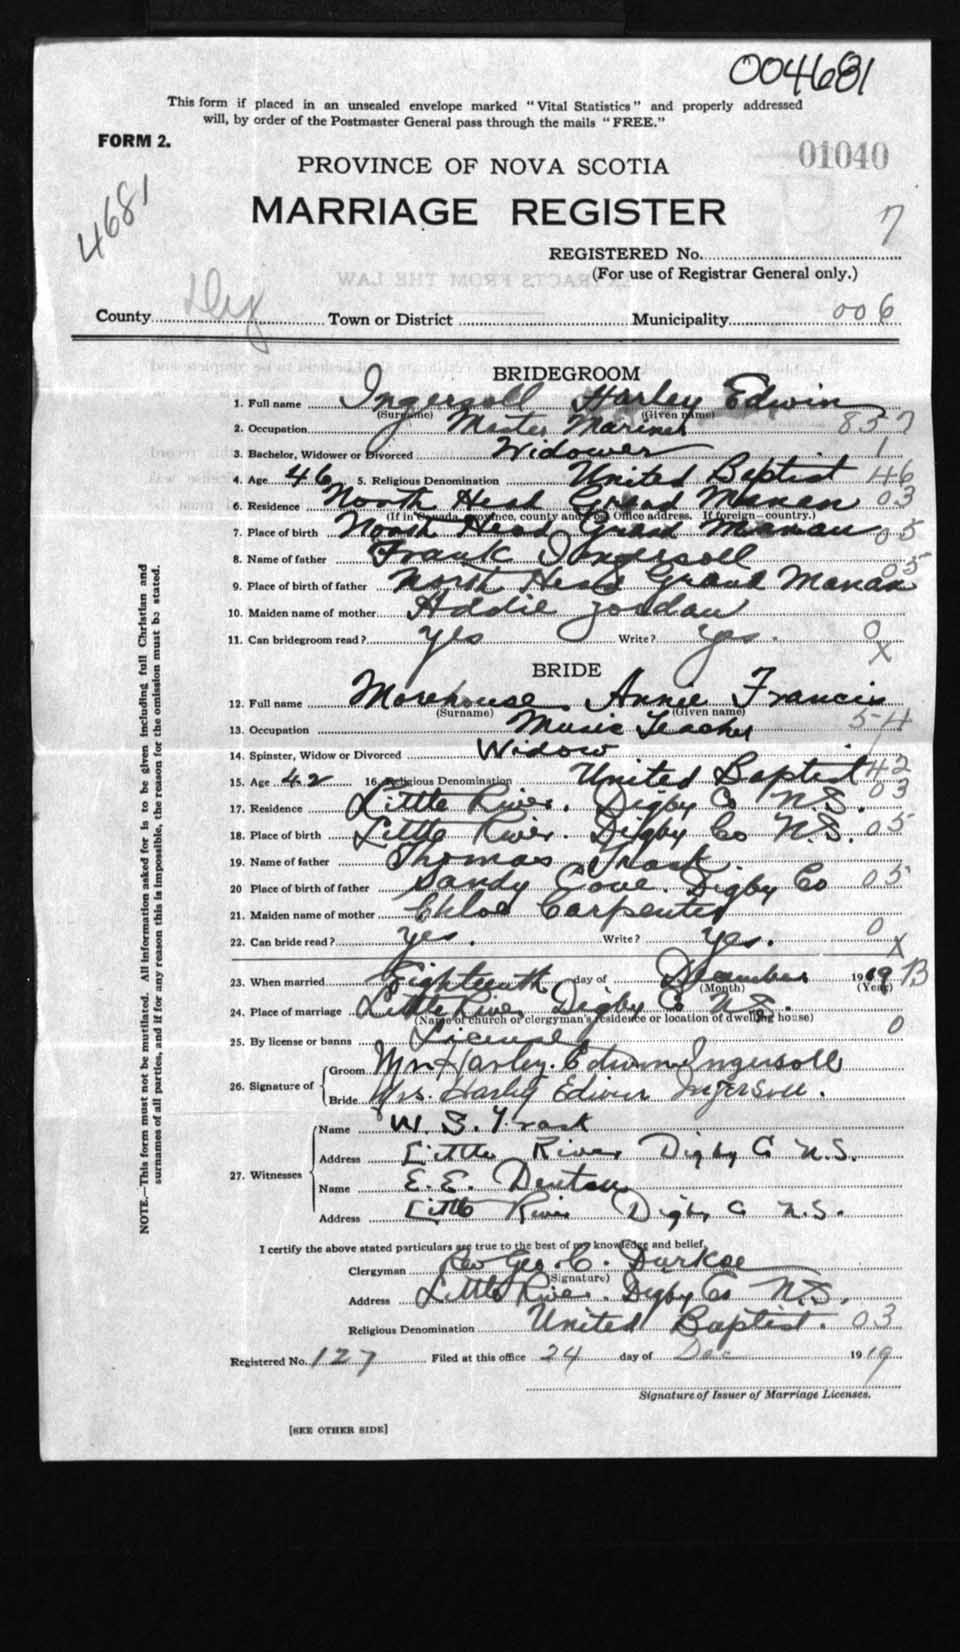 004681
This form if placed in an unsealed envelope marked "Vital Statistics" and properly addressed
will, by order of the Postmaster General pass through the mails "FREE."
FORM 2.
01040
PROVINCE OF NOVA SCOTIA
4681
MARRIAGE REGISTER
7
REGISTERED No.
(For use of Registrar General only.)
County Dig Town or District Municipality 006
BRIDEGROOM
1. Full name Ingersoll Harley Edwin
(Surname) (Given name)
2. Occupation Master Mariner 857
3. Bachelor, Widower or Divorced Widower 1
4. Age 46 5. Religious Denomination United Baptist 46
6. Residence North Head Grand Manan 03
(If in Canada, province, county and Post Office address. If foreign—country.)
7. Place of birth North Head Grand Manan 05
8. Name of father Frank Ingersoll
9. Place of birth of father North Head Grand Manan 05
10. Maiden name of mother Addie Jordan
11. Can bridegroom read? Yes Write? Yes. 0
X
BRIDE
12. Full name Morehouse, Annie Francis
(Surname) (Given name)
13. Occupation Music Teacher 54
14. Spinster, Widow or Divorced Widow
15. Age 42 16. Religious Denomination United Baptist 42
17. Residence Little River. Digby Co N.S. 03
18. Place of birth Little River. Digby Co N.S. 05
19. Name of father Thomas Trask.
20 Place of birth of father Sandy Cove. Digby Co 05
21. Maiden name of mother Chloe Carpenter
22. Can bride read? Yes. Write? Yes. 0
X
23. When married Eighteenth day of December 1919 B
(Month) (Year)
24. Place of marriage Little River Digby Co N.S.
(Name of church or clergyman's residence or location of dwelling house)
25. By license or banns License 0
26. Signature of
Groom Mr. Harley. Edwin Ingersoll
Bride Mrs. Harley Edwin Ingersoll.
27. Witnesses
Name W. S. Trask
Address Little River Digby Co N.S.
Name E. E. Denton
Address Little River Digby Co N.S.
I certify the above stated particulars are true to the best of my knowledge and belief.
Clergyman Rev Geo. C. Durkee
(Signature)
Address Little River. Digby Co N.S.
Religious Denomination United Baptist. 03
Registered No. 127 Filed at this office 24 day of Dec 1919
Signature of Issuer of Marriage Licenses.
[SEE OTHER SIDE]
NOTE.—This form must not be mutilated. All information asked for is to be given including full Christian and
surnames of all parties, and if for any reason this is impossible, the reason for the omission must be stated.